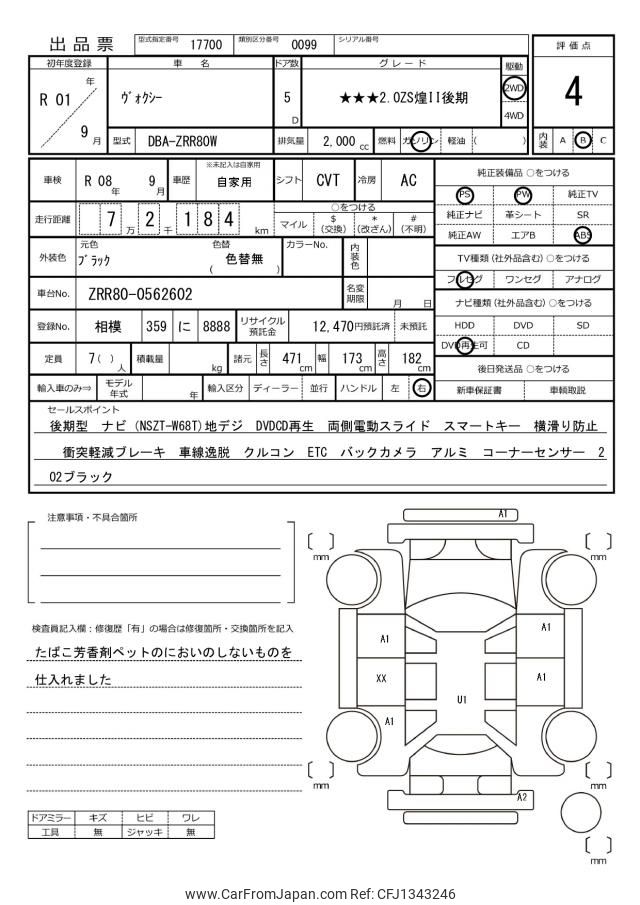 出品票 型式指定番号 17700 類別区分番号 0099 シリアル番号
評価点
初年度登録 車名 ドア数 グレード 駆動
R 01 年 ヴォクシー 5 D ★★★2.0ZS煌II後期 2WD 4
4WD
9 月 型式 DBA-ZRR80W 排気量 2,000 cc 燃料 ガソリン 軽油 ( ) 内装 A B C
車検 R 08 年 9 月 車歴 ※未記入は自家用 自家用 シフト CVT 冷房 AC
純正装備品 ○をつける
PS PW 純正TV
走行距離 7 万 2 千 1 8 4 km
○をつける
マイル $ (交換) * (改ざん) # (不明)
純正ナビ 革シート SR
純正AW エアB ABS
外装色 元色 ブラック 色替 ( 色替無 ) カラーNo. 内装色
TV種類 (社外品含む) ○をつける
フルセグ ワンセグ アナログ
車台No. ZRR80-0562602 名変期限 月 日
ナビ種類 (社外品含む) ○をつける
登録No. 相模 359 に 8888 リサイクル預託金 12,470円預託済 未預託
HDD DVD SD
DVD再生可 CD
定員 7( ) 人 積載量 kg 諸元 長さ 471 cm 幅 173 cm 高さ 182 cm
後日発送品 ○をつける
輸入車のみ⇒ モデル年式 年 輸入区分 ディーラー・並行 ハンドル 左 右
新車保証書 車輌取説
セールスポイント
後期型 ナビ(NSZT-W68T)地デジ DVDCD再生 両側電動スライド スマートキー 横滑り防止
衝突軽減ブレーキ 車線逸脱 クルコン ETC バックカメラ アルミ コーナーセンサー 2
02ブラック
注意事項・不具合箇所
A1
mm mm
検査員記入欄:修復歴「有」の場合は修復箇所・交換箇所を記入
たばこ芳香剤ペットのにおいのしないものを
仕入れました
A1 A1
XX A1
U1
A1
mm mm
A2
ドアミラー キズ ヒビ ワレ
工具 無 ジャッキ 無
mm
www.CarFromJapan.com Ref: CFJ1343246